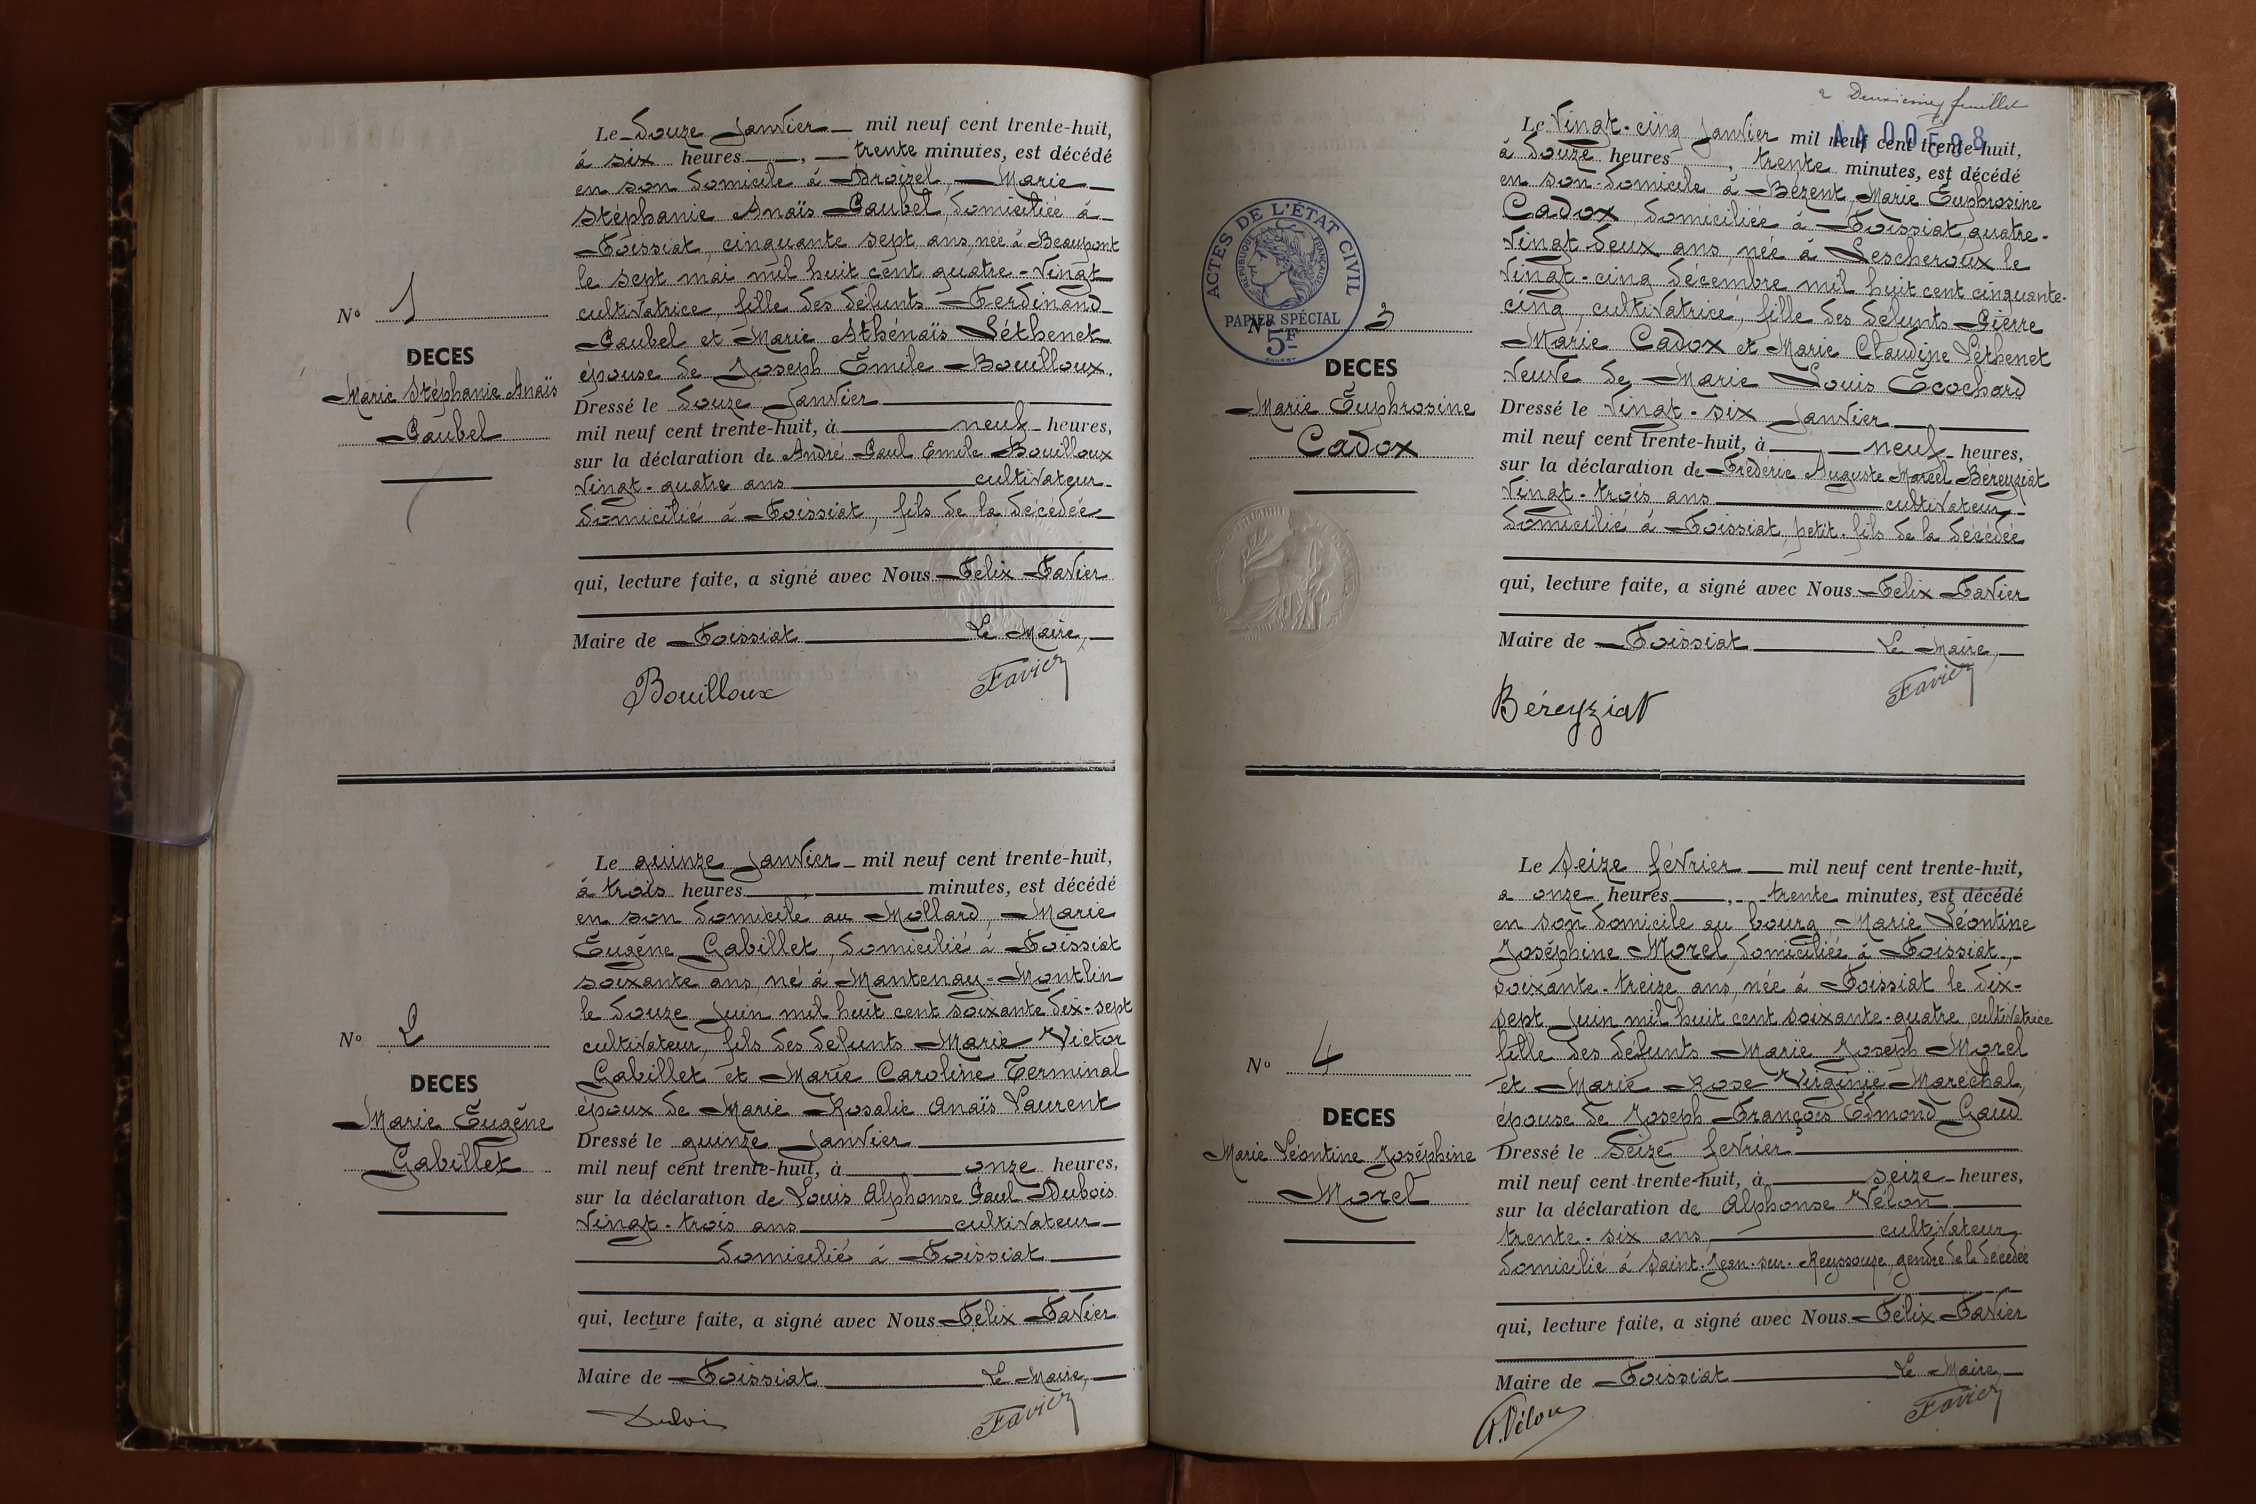 Le douze janvier mil neuf cent trente-huit,
à six heures, trente minutes, est décédé
en son domicile à Broizel, Marie
Stéphanie Anaïs Paubel, domiciliée à
Foissiat, cinquante sept ans, née à Beaupont
le sept mai mil huit cent quatre-vingt
cultivatrice, fille des défunts Ferdinand
Paubel et Marie Athénaïs Léthenet
épouse de Joseph Émile Bouilloux.
No 1
DECES
Marie Stéphanie Anaïs
Paubel
Dressé le douze janvier
mil neuf cent trente-huit, à neuf heures,
sur la déclaration de André Paul Emile Bouilloux
vingt-quatre ans cultivateur
domicilié à Foissiat, fils de la décédée
qui, lecture faite, a signé avec Nous Félix Favier
Maire de Foissiat Le Maire,
Bouilloux Favier
Le quinze janvier mil neuf cent trente-huit,
à trois heures, minutes, est décédé
en son domicile au Mollard, Marie
Eugène Gabillet, domicilié à Foissiat
soixante ans, né à Mantenay-Montlin
le douze juin mil huit cent soixante dix-sept
cultivateur, fils des défunts Marie Victor
Gabillet et Marie Caroline Terminal
époux de Marie Rosalie Anaïs Laurent
No 2
DECES
Marie Eugène
Gabillet
Dressé le quinze janvier
mil neuf cent trente-huit, à onze heures,
sur la déclaration de Louis Alphonse Paul Dubois
vingt-trois ans cultivateur
domicilié à Foissiat
qui, lecture faite, a signé avec Nous Félix Favier
Maire de Foissiat Le Maire,
Dubois Favier
2 Deuxième feuillet
Le vingt-cinq janvier mil neuf cent trente-huit,
à douze heures, trente minutes, est décédé
en son domicile à Bézent, Marie Euphrosine
Cadox, domiciliée à Foissiat, quatre-
vingt deux ans, née à Lescheroux le
vingt-cinq décembre mil huit cent cinquante-
cinq, cultivatrice, fille des défunts Pierre
Marie Cadox et Marie Claudine Léthenet
veuve de Marie Louis Ecochard
ACTES DE L'ÉTAT CIVIL
RÉPUBLIQUE FRANÇAISE
PAPIER SPÉCIAL
5F
No 3
DECES
Marie Euphrosine
Cadox
Dressé le vingt-six janvier
mil neuf cent trente-huit, à neuf heures,
sur la déclaration de Frédéric Auguste Marcel Béreyziat
vingt-trois ans cultivateur
domicilié à Foissiat, petit-fils de la décédée
qui, lecture faite, a signé avec Nous Félix Favier
Maire de Foissiat Le Maire,
Béreyziat Favier
Le seize février mil neuf cent trente-huit,
a onze heures, trente minutes, est décédé
en son domicile au bourg, Marie Léontine
Joséphine Morel, domiciliée à Foissiat,
soixante-treize ans, née à Foissiat le dix-
sept juin mil huit cent soixante-quatre, cultivatrice
fille des défunts Marie Joseph Morel
et Marie Rose Virginie Maréchal,
épouse de Joseph François Edmond Gaud
No 4
DECES
Marie Léontine Joséphine
Morel
Dressé le seize février
mil neuf cent trente-huit, à seize heures,
sur la déclaration de Alphonse Vélon
trente-six ans cultivateur
domicilié à Saint-Jean-sur-Reyssouze, gendre de la décédée
qui, lecture faite, a signé avec Nous Félix Favier
Maire de Foissiat Le Maire,
A. Vélon Favier